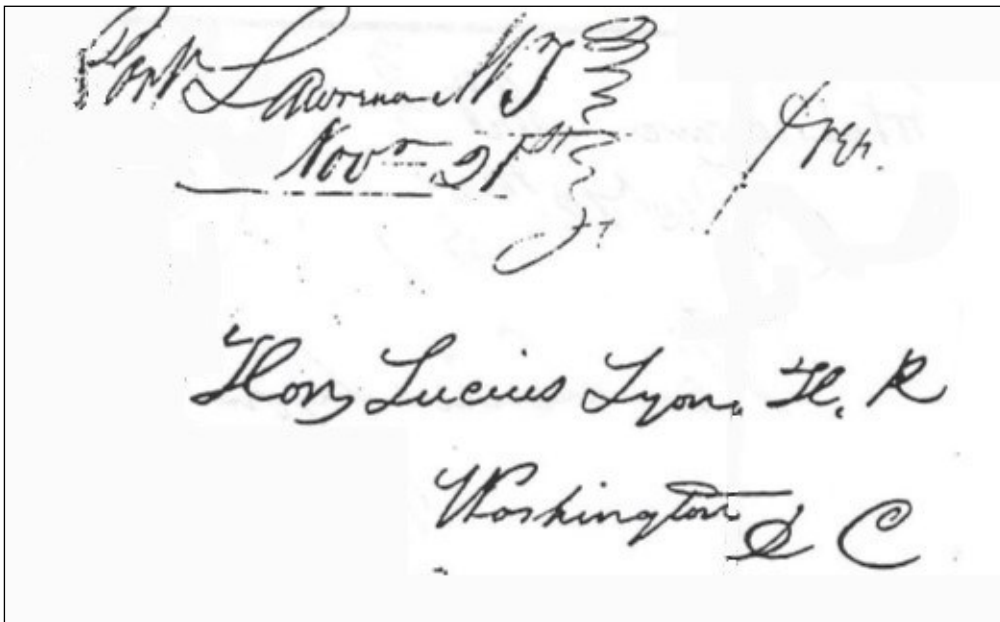 Lawrence W T
Nov 21st
Free
Hon Lucius Lyon. H. R
Washington D C